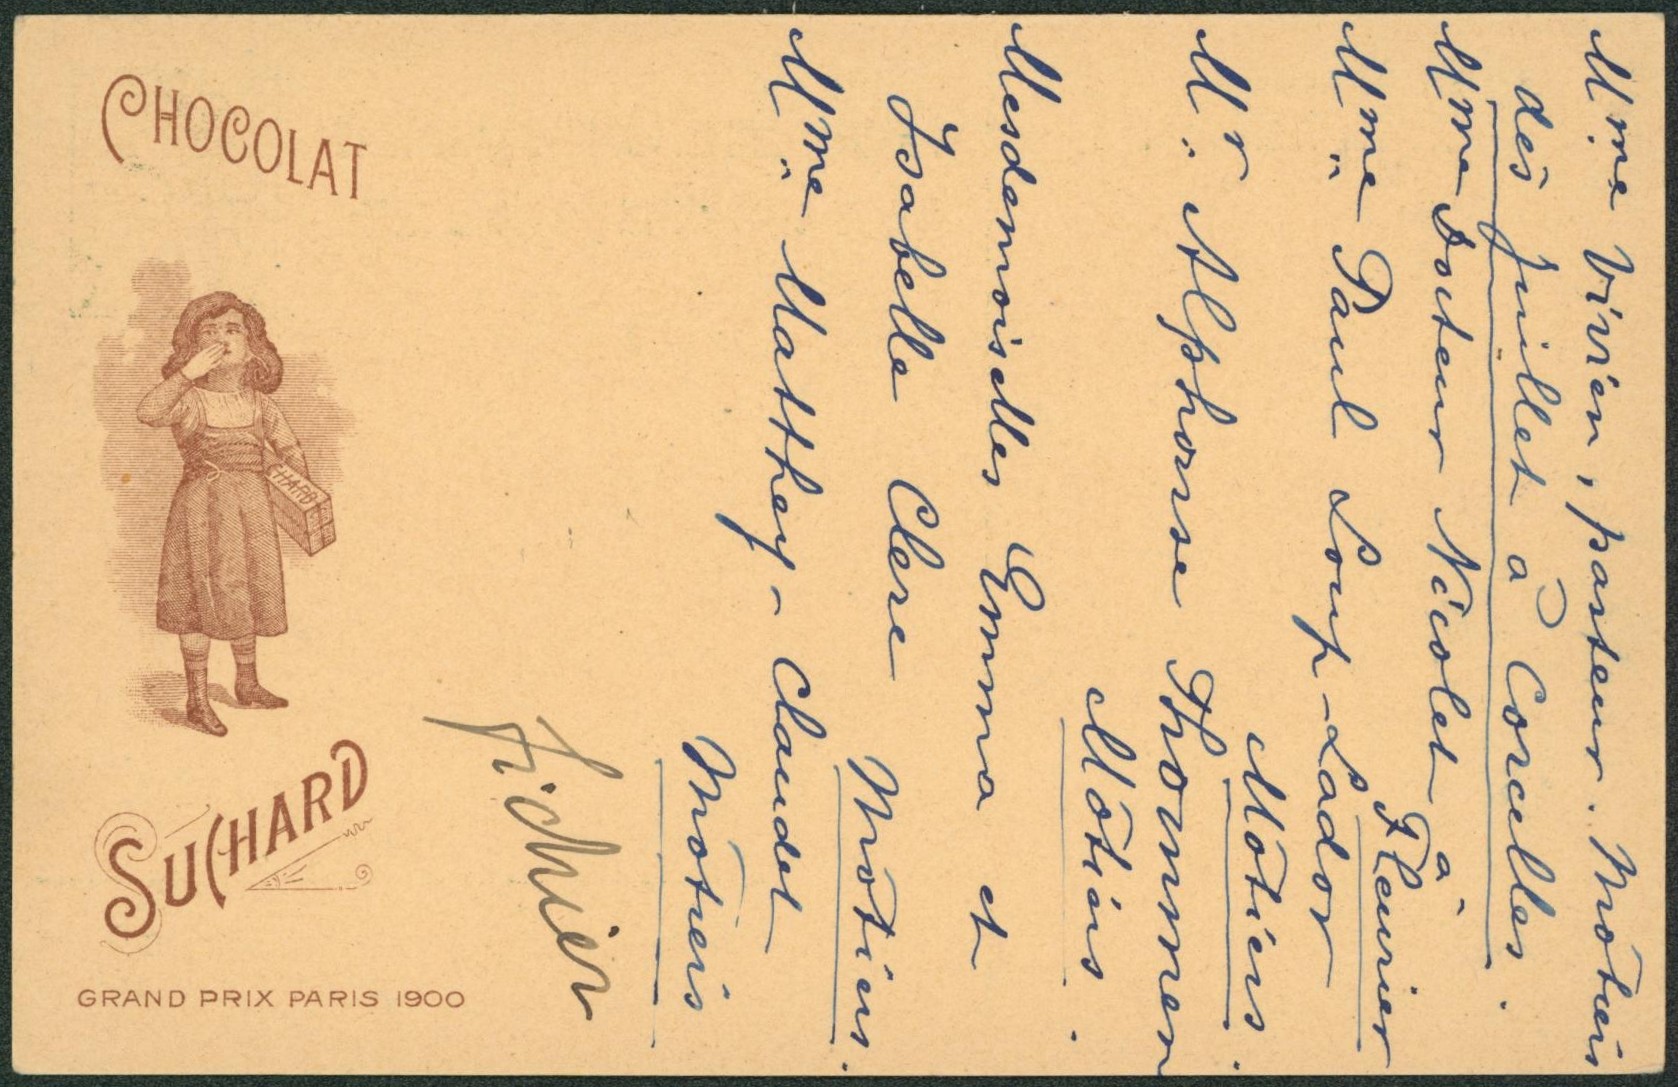 CHOCOLAT
SUCHARD
HARD
GRAND PRIX PARIS 1900
Mme Vivien, pasteur. Môtiers
dès Juillet à Corcelles.
Mme Docteur Nicolet à
Fleurier
Mme Paul Loup-Lador
Môtiers.
Mr Alphonse Thommen
Môtiers.
Mesdemoiselles Emma et
Isabelle Clerc
Môtiers.
Mme Matthey-Claudet
Môtiers
Fichier